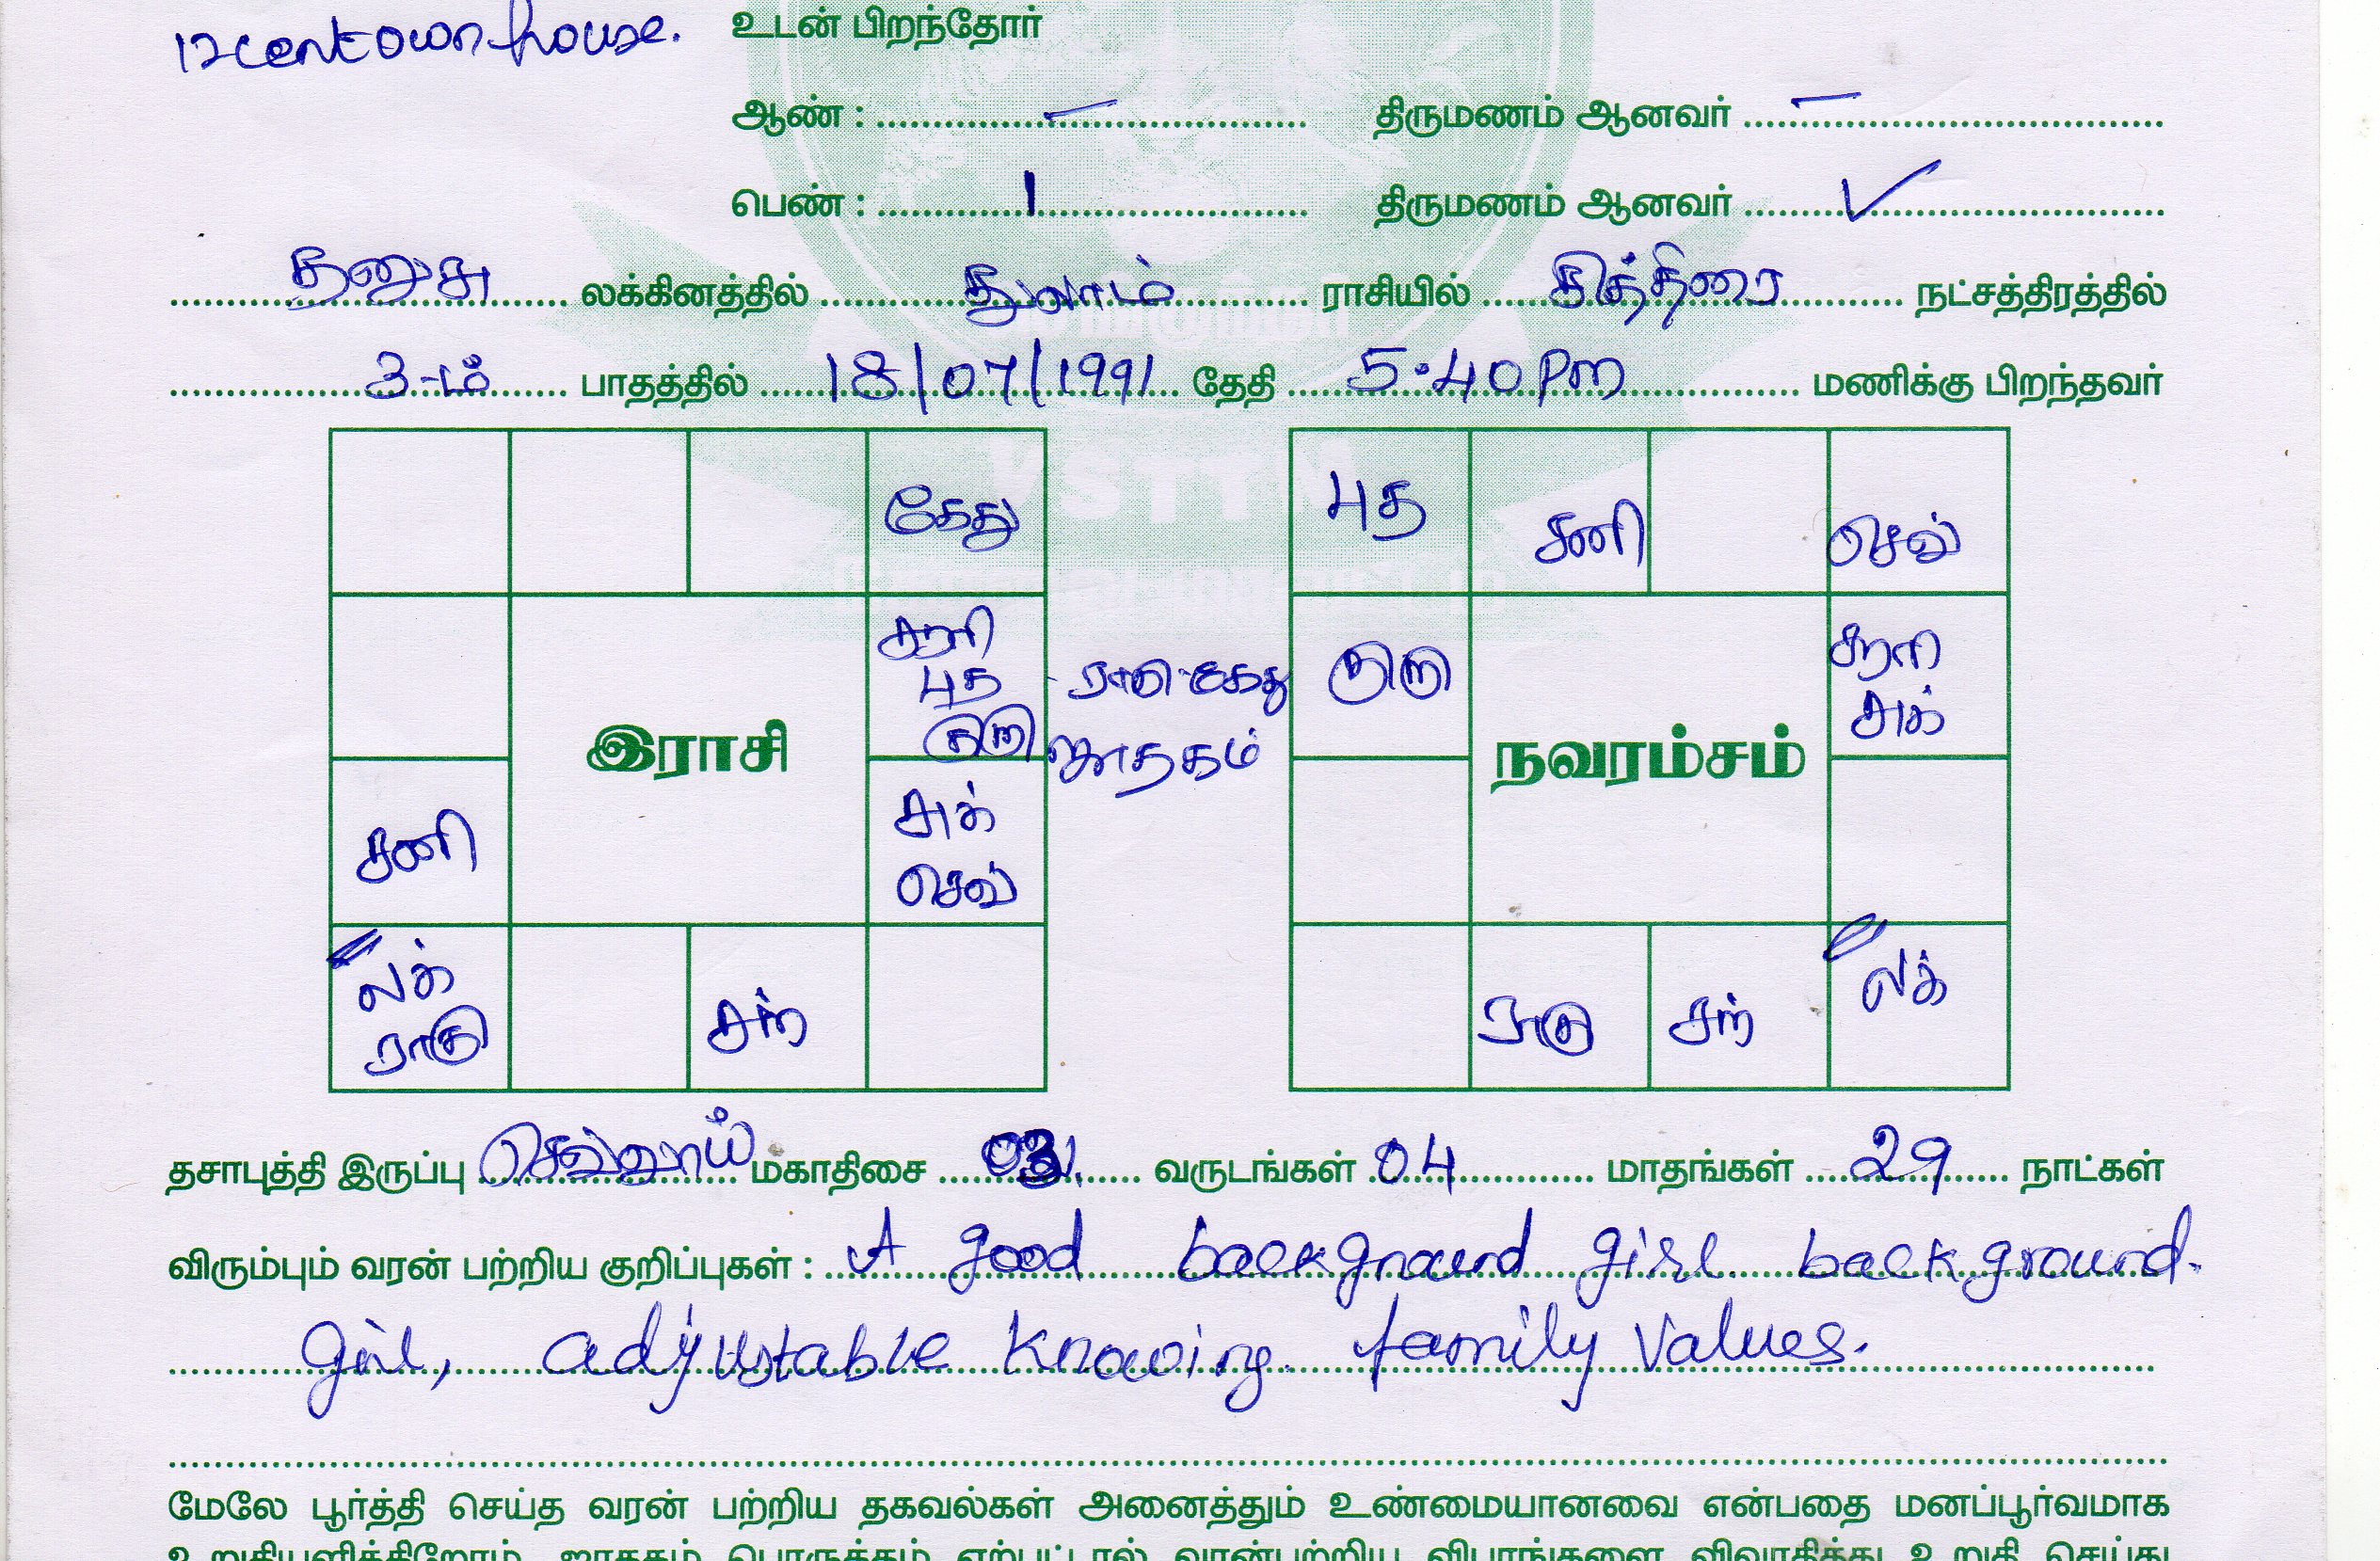 12 cent own house. உடன் பிறந்தோர்
ஆண் : – திருமணம் ஆனவர் –
பெண் : 1 திருமணம் ஆனவர் ✓
தனுசு லக்கினத்தில் துலாம் ராசியில் சித்திரை நட்சத்திரத்தில்
3-ம் பாதத்தில் 18/07/1991 தேதி 5.40 Pm மணிக்கு பிறந்தவர்
கேது
சூரி
புத
குரு
சனி
சுக்
செவ்
லக்
ராகு
சந்
இராசி
ராகு-கேது
ஜாதகம்
புத
சனி
செவ்
குரு
சூரி
சுக்
ராகு
சந்
லக்
நவரம்சம்
VSTTM
தசாபுத்தி இருப்பு செவ்வாய் மகாதிசை 03 வருடங்கள் 04 மாதங்கள் 29 நாட்கள்
விரும்பும் வரன் பற்றிய குறிப்புகள் : A good background girl background.
girl, adjustable knowing family values.
மேலே பூர்த்தி செய்த வரன் பற்றிய தகவல்கள் அனைத்தும் உண்மையானவை என்பதை மனப்பூர்வமாக
உறுதியளிக்கிறோம். ஜாதகம் பொருத்தம் ஏற்பட்டால் வரன்பற்றிய விபரங்களை விவாதித்து உறுதி செய்து